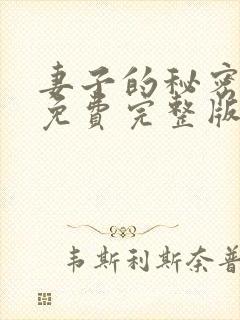 妻子的秘密
免费完整版
韦斯利斯奈普